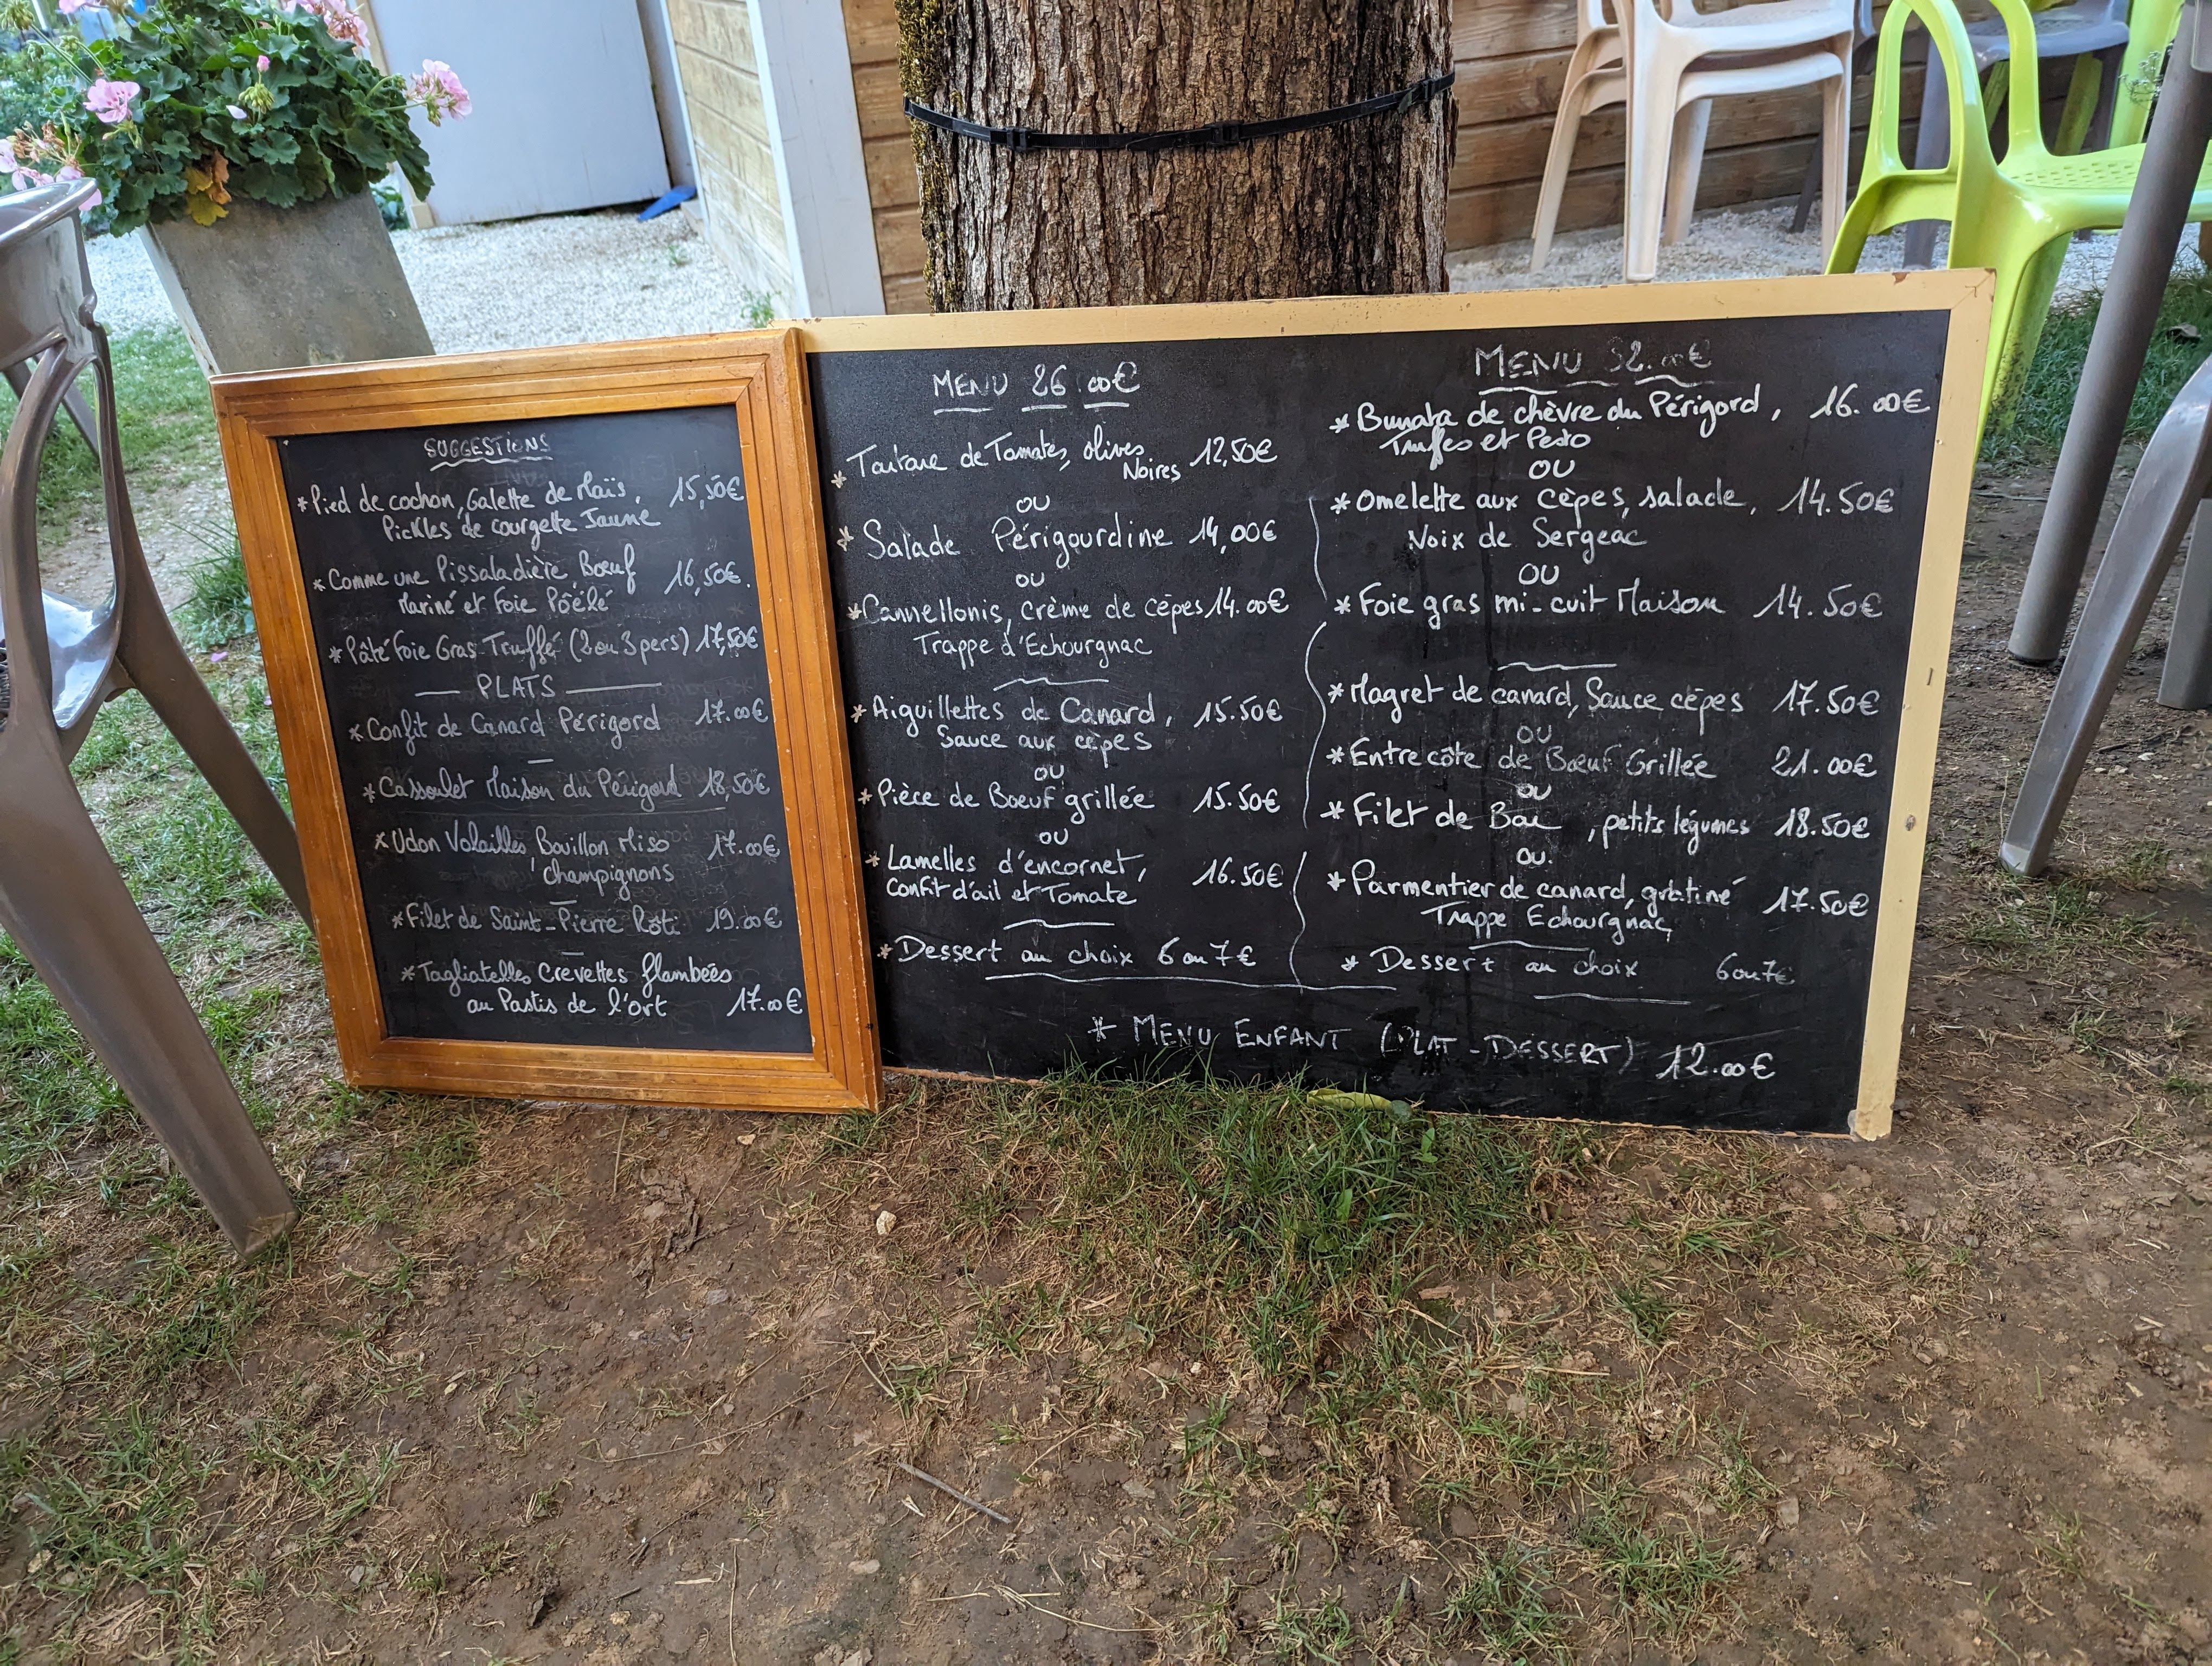 SUGGESTIONS
* Pied de cochon, Galette de Maïs, 15,50€
Pickles de courgette Jaune
* Comme une Pissaladière, Bœuf 16,50€.
Mariné et Foie Pôélé
* Pâté Foie Gras Truffé (2 ou 3 pers) 17,50€
PLATS
* Confit de Canard Périgord 17.00€
* Cassoulet Maison du Périgord 18,50€
* Udon Volailles Bouillon Miso 17.00€
Champignons
* Filet de Saint-Pierre Rôti 19.00€
* Tagliatelles Crevettes flambées
au Pastis de l'ort 17.00€
MENU 26.00€
* Tartare de Tomates, olives 12,50€
Noires
OU
* Salade Périgourdine 14,00€
OU
* Cannellonis, crème de cèpes 14.00€
Trappe d'Echourgnac
* Aiguillettes de Canard, 15.50€
Sauce aux cèpes
OU
* Pièce de Bœuf grillée 15.50€
OU
* Lamelles d'encornet, 16.50€
Confit d'ail et Tomate
* Dessert au choix 6 ou 7€
MENU 32.00€
* Burrata de chèvre du Périgord, 16.00€
Truffes et Pesto
OU
* Omelette aux cèpes, salade, 14.50€
Noix de Sergeac
OU
* Foie gras mi-cuit Maison 14.50€
* Magret de canard, Sauce cèpes 17.50€
OU
* Entrecôte de Bœuf Grillée 21.00€
OU
* Filet de Bar, petits légumes 18.50€
OU.
* Parmentier de canard, gratiné 17.50€
Trappe Echourgnac
* Dessert au choix 6 ou 7€
* MENU ENFANT (PLAT-DESSERT) 12.00€